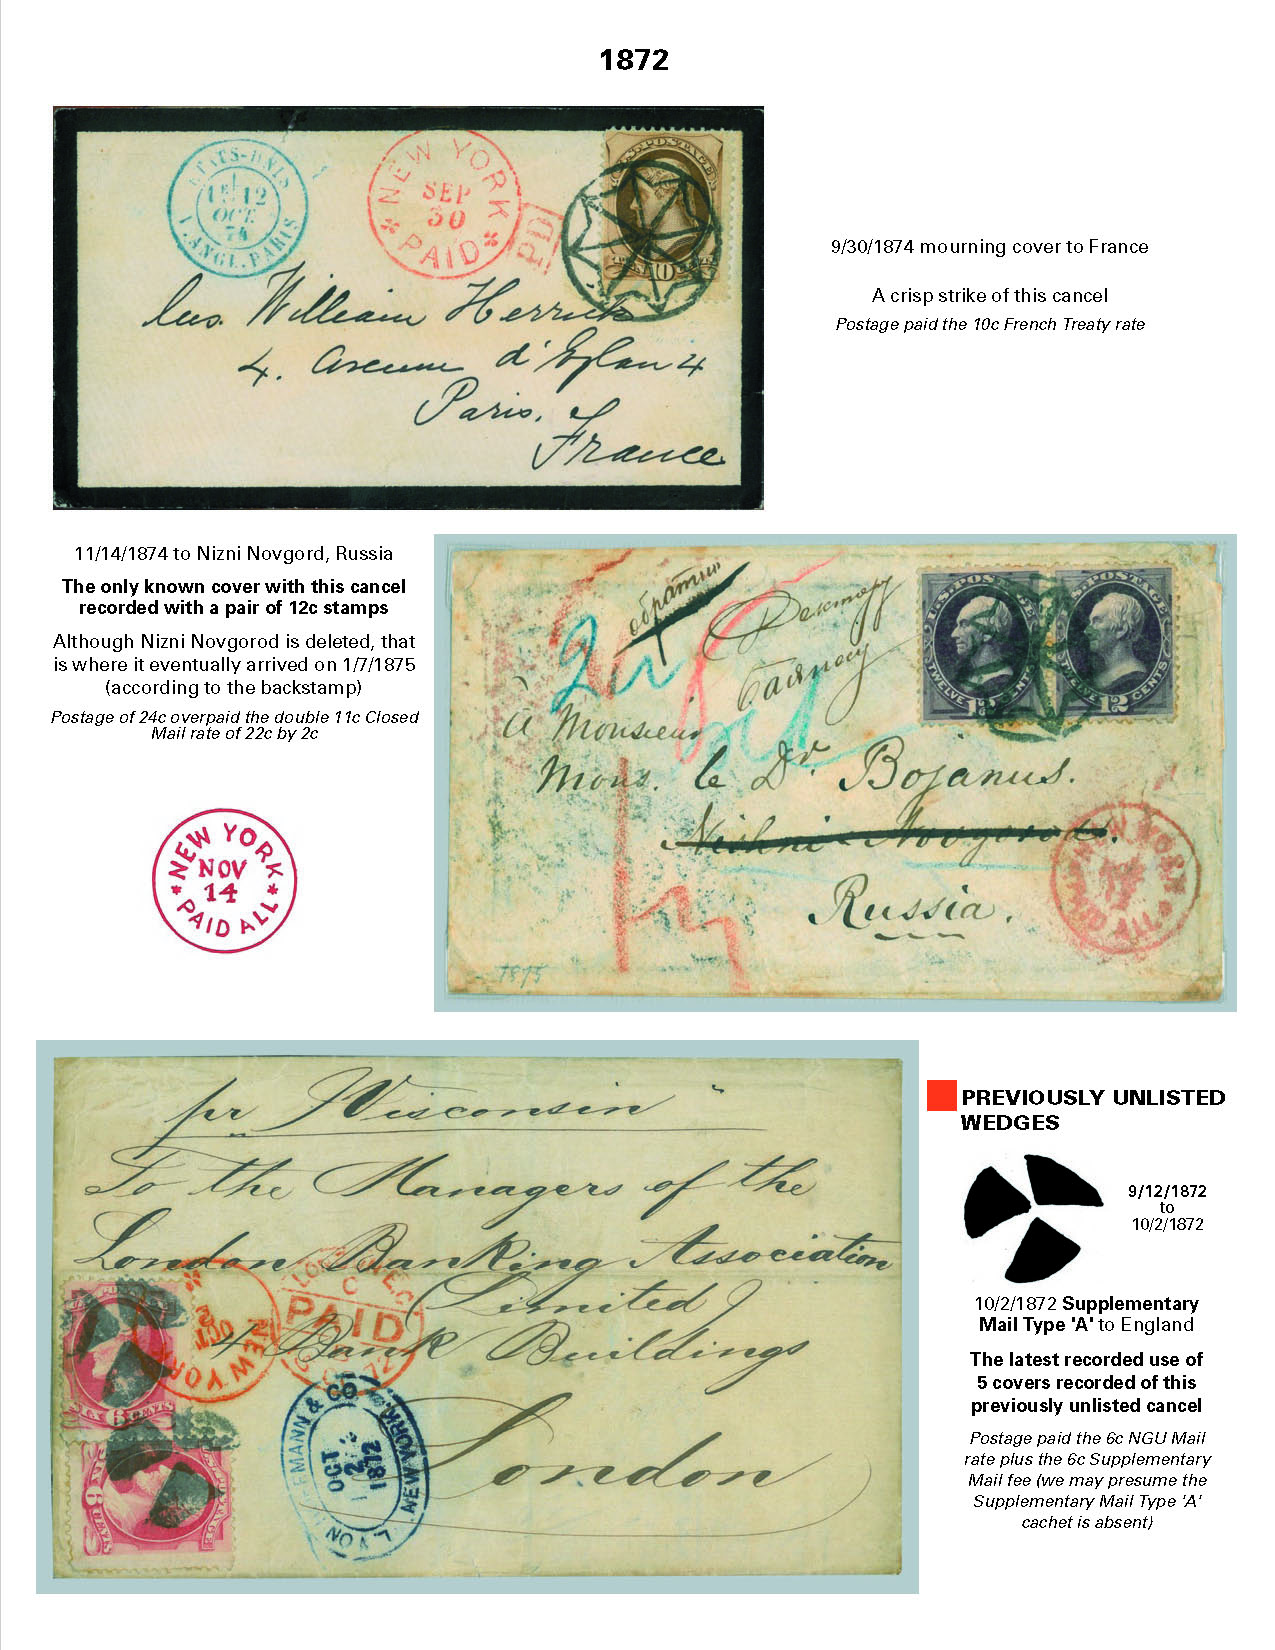 1872
ETATS-UNIS
12
OCT.
74
ANGL. PARIS
NEW YORK
SEP
30
PAID
PD
U.S. POSTAGE
10
William Herrick
4. Avenue d'Eylau 4
Paris.
France
9/30/1874 mourning cover to France
A crisp strike of this cancel
Postage paid the 10c French Treaty rate
11/14/1874 to Nizni Novgord, Russia
The only known cover with this cancel
recorded with a pair of 12c stamps
Although Nizni Novgorod is deleted, that
is where it eventually arrived on 1/7/1875
(according to the backstamp)
Postage of 24c overpaid the double 11c Closed
Mail rate of 22c by 2c
NEW YORK
NOV
14
PAID ALL
U.S. POSTAGE
TWELVE CENTS
12
à Monsieur
Mons. le Dr. Bojanus.
Nishni-Novgorod.
Russia.
NEW YORK
PAID ALL
1875
pr "Wisconsin"
To the Managers of the
London Banking Association
(Limited)
4 Bank Buildings
London
NEW YORK
OCT
2
LONDON E.C
PAID
72
6 CENTS
6 CENTS
& CO
NEW YORK.
OCT
2
1872
PREVIOUSLY UNLISTED
WEDGES
9/12/1872
to
10/2/1872
10/2/1872 Supplementary
Mail Type 'A' to England
The latest recorded use of
5 covers recorded of this
previously unlisted cancel
Postage paid the 6c NGU Mail
rate plus the 6c Supplementary
Mail fee (we may presume the
Supplementary Mail Type 'A'
cachet is absent)